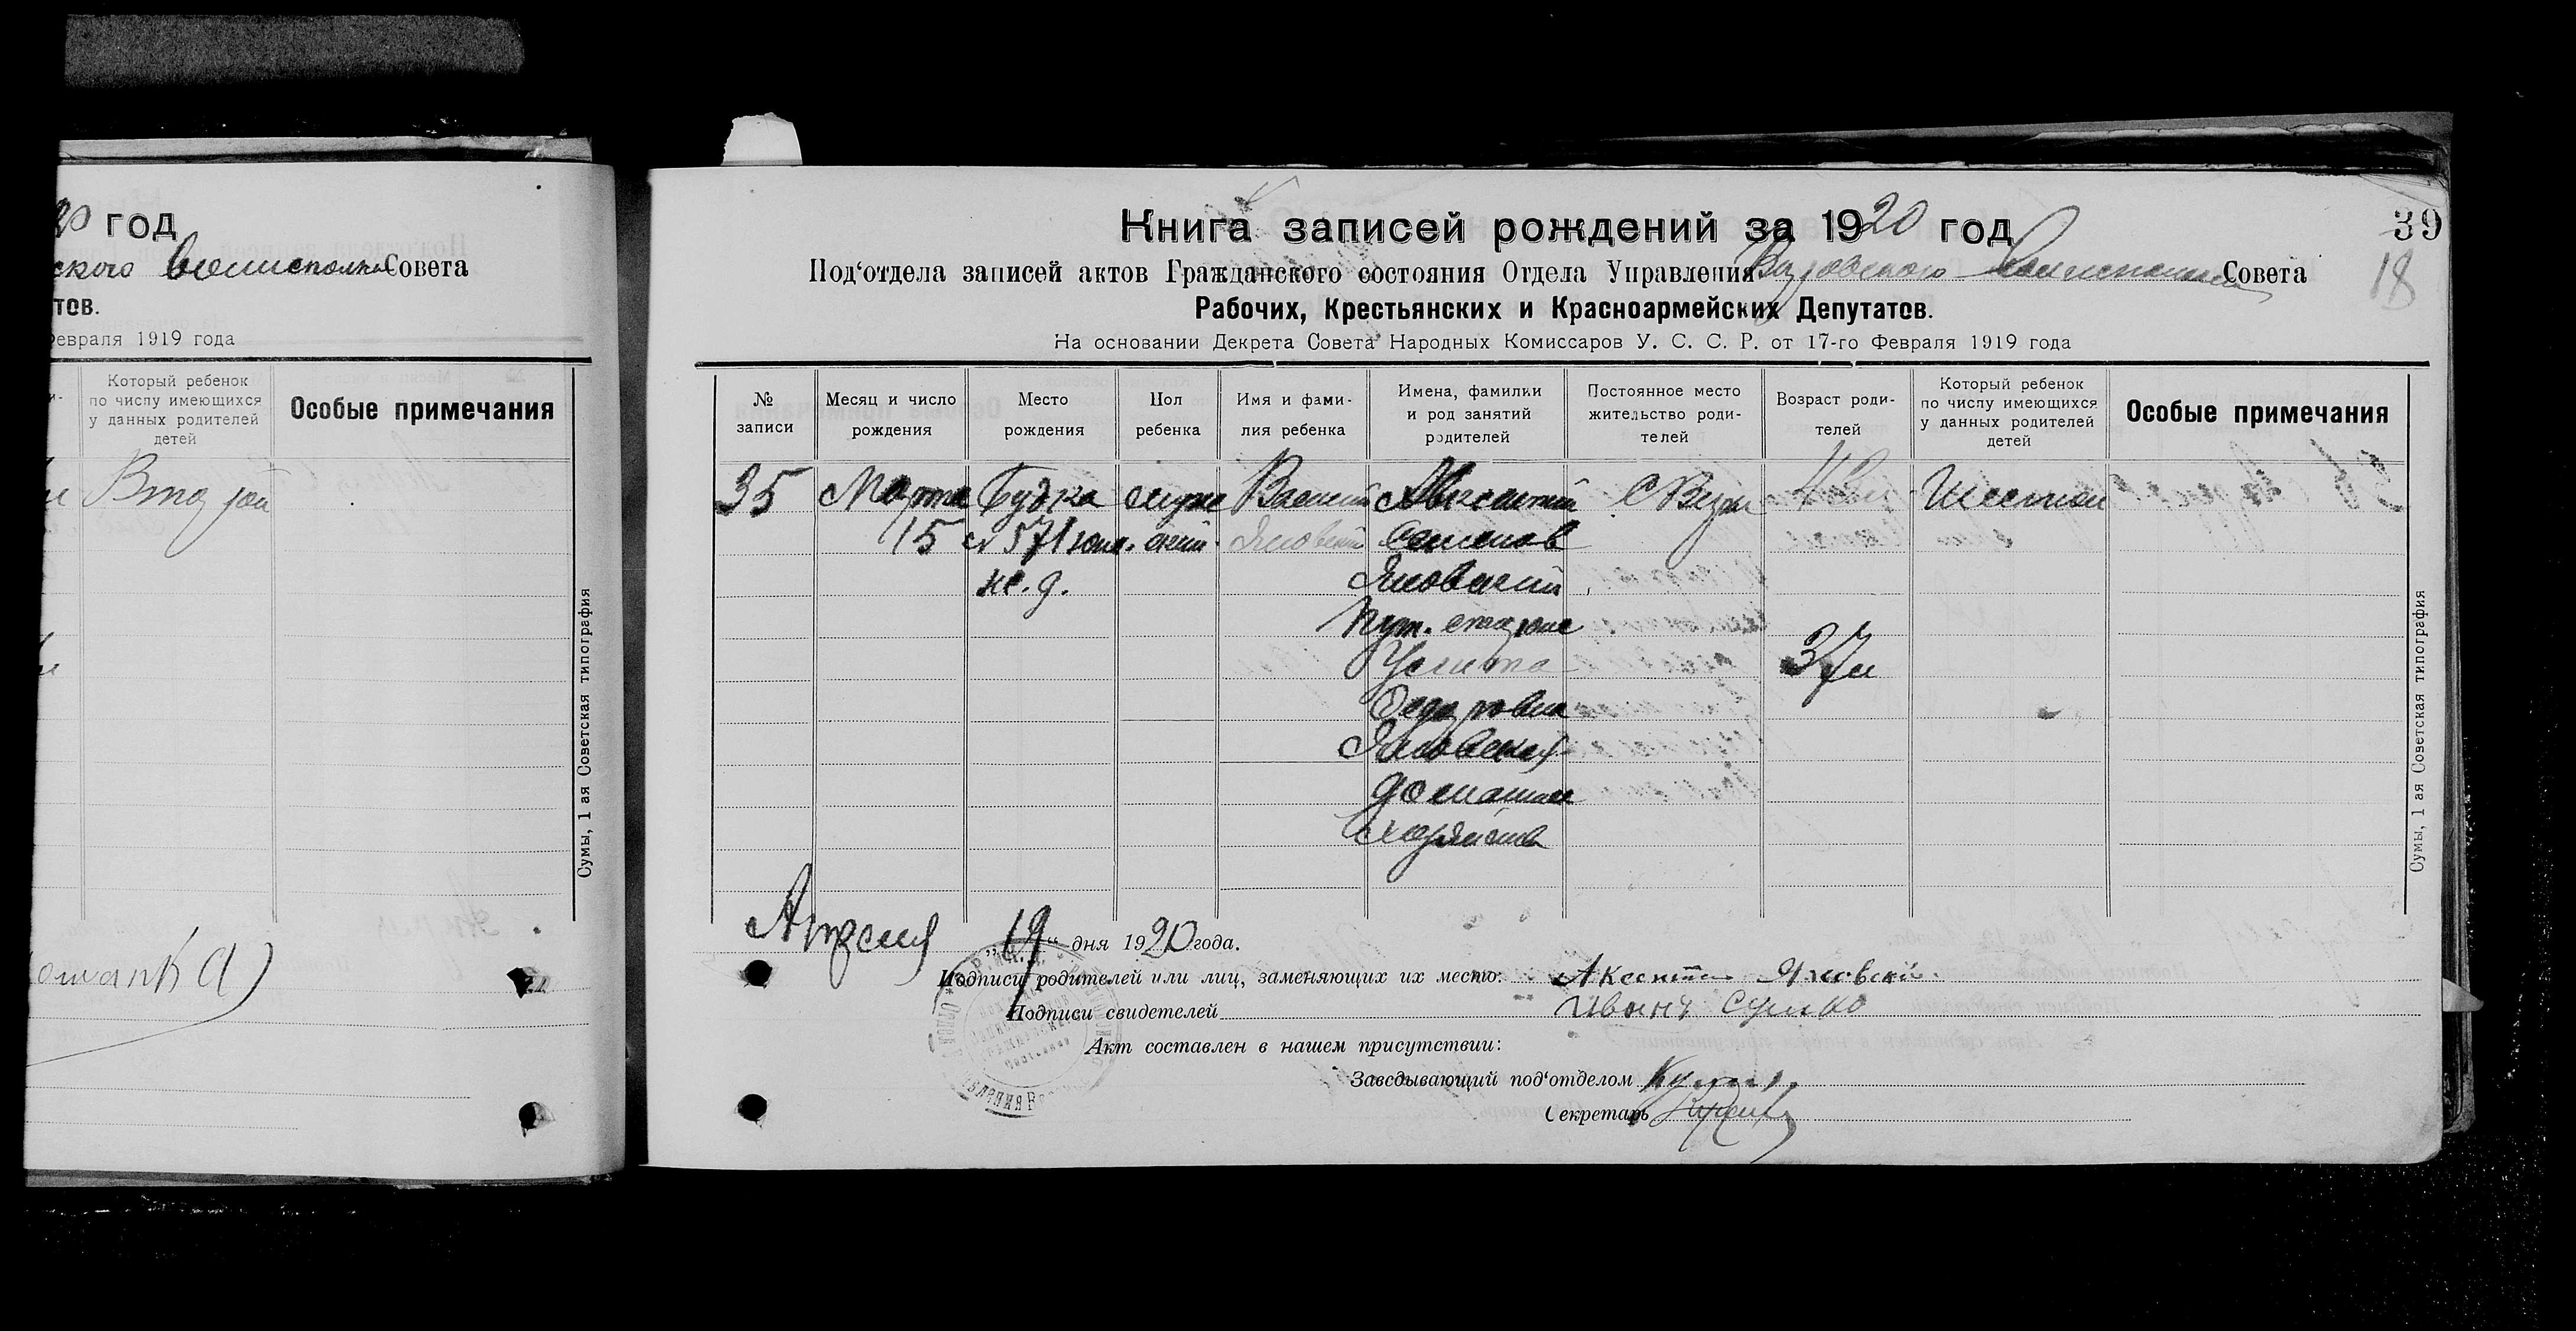 20 год
ского Волисполкома Совета
тов.
Февраля 1919 года
Который ребенок
по числу имеющихся
у данных родителей
детей
Особые примечания
Второй
Сумы, 1 ая Советская типография
Книга записей рождений за 1920 год
39
Под‘отдела записей актов Гражданского состояния Отдела Управления Совета
18
Рабочих, Крестьянских и Красноармейских Депутатов.
На основании Декрета Совета Народных Комиссаров У. С. С. Р. от 17-го Февраля 1919 года
№ записи
Месяц и число рождения
Место рождения
Пол ребенка
Имя и фами-
лия ребенка
Имена, фамилии
и род занятий
родителей
Постоянное место
жительство роди-
телей
Возраст роди-
телей
Который ребенок
по числу имеющихся
у данных родителей
детей
Особые примечания
35
Марта
15
Будка
571
ж. д.
муже
ский
Василий
Яновский
Авксентий
Семенов
Яновский
Пут. сторож
Федоровна
Яновская
домашнее
хозяйство
Шестой
37
Сумы, 1 ая Советская типография
Апреля „19“ дня 1920 года.
Подписи родителей или лиц, заменяющих их место:
Подписи свидетелей Иванъ
Акт составлен в нашем присутствии:
Заведывающий под‘отделом
Секретарь